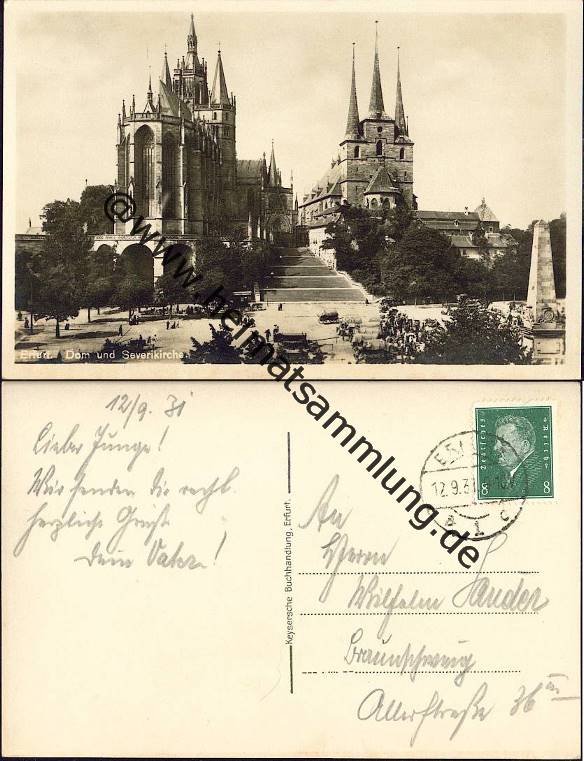 Erfurt. Dom und Severikirche.
@www.heimatsammlung.de
12/9. 31
Lieber Junge!
Wir senden dir recht
herzliche Grüße
Dein Vater!
Keysersche Buchhandlung, Erfurt.
Deutsches Reich
8 8
12.9.31
* 1 c
An
Herrn
Wilhelm Sander
Braunschweig
Allerstraße 36